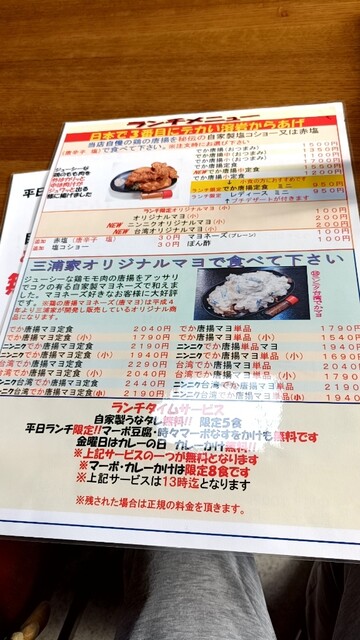 ランチメニュー
日本で3番目にデカい溶岩からあげ
当店自慢の鶏の唐揚を秘伝の自家製塩コショー又は赤塩
(唐辛子 塩)で食べて下さい。※注文時にお選び下さい
でか唐揚(おつまみ) 1500円
でか唐揚(おつまみ)
でか唐揚(おつまみ)
NEW でか唐揚中定食
でか唐揚小定食
ランチ限定 でか唐揚定食 ミニ 950円
ランチ限定 レディース ミニ 950円
プチデザートが付きます
ジューシーな
鶏のモモ肉を
外はガリッと
中は肉汁が
ジュワッと出る
様に揚げました
ランチ限定オリジナルマヨ(小)
オリジナルマヨ(小) 100円
NEW ニンニクオリジナルマヨ(小)
NEW 台湾オリジナルマヨ(小)
追加 赤塩(唐辛子 塩) 30円 マヨネーズ(プレーン)
追加 塩コショー 30円 ぽん酢 100円
三浦家オリジナルマヨで食べて下さい
ジューシーな鶏モモ肉の唐揚をアッサリ
でコクの有る自家製マヨネーズで和え
ました。マヨネーズ好きなお客様に大好評
です。※鶏の唐揚マヨネーズ(唐マヨ)は平成
4年より三浦家が開発し販売しているオリジナル商
品になります。
でか唐揚マヨ定食 2040円
でか唐揚マヨ定食(小) 1790円
ニンニクでか唐揚マヨ定食 2190円
ニンニクでか唐揚マヨ定食(小) 1940円
台湾でか唐揚マヨ定食 2290円
台湾でか唐揚マヨ定食(小) 2040円
ニンニク台湾でか唐揚マヨ定食 2440円
ニンニク台湾でか唐揚マヨ定食(小) 2190円
でか唐揚マヨ単品 1790円
でか唐揚マヨ単品(小) 1540円
ニンニクでか唐揚単品マヨ 1940円
ニンニクでか唐揚マヨ単品(小) 1690円
台湾でか唐揚マヨ単品
台湾でか唐揚マヨ単品(小) 1790円
ニンニク台湾でか唐揚マヨ単品 2190円
ニンニク台湾でか唐揚マヨ単品(小) 1940円
ランチタイムサービス
自家製うなタレ無料!! 限定5食
平日ランチ限定!!マーボ豆腐・時々マーボなすをかけも無料です
金曜日はカレーの日 カレーかけ無料!!
※上記サービスの一つが無料となります
※マーボ・カレーかけは限定8食です
※上記サービスは13時迄となります
※残された場合は正規の料金を頂きます。
平日